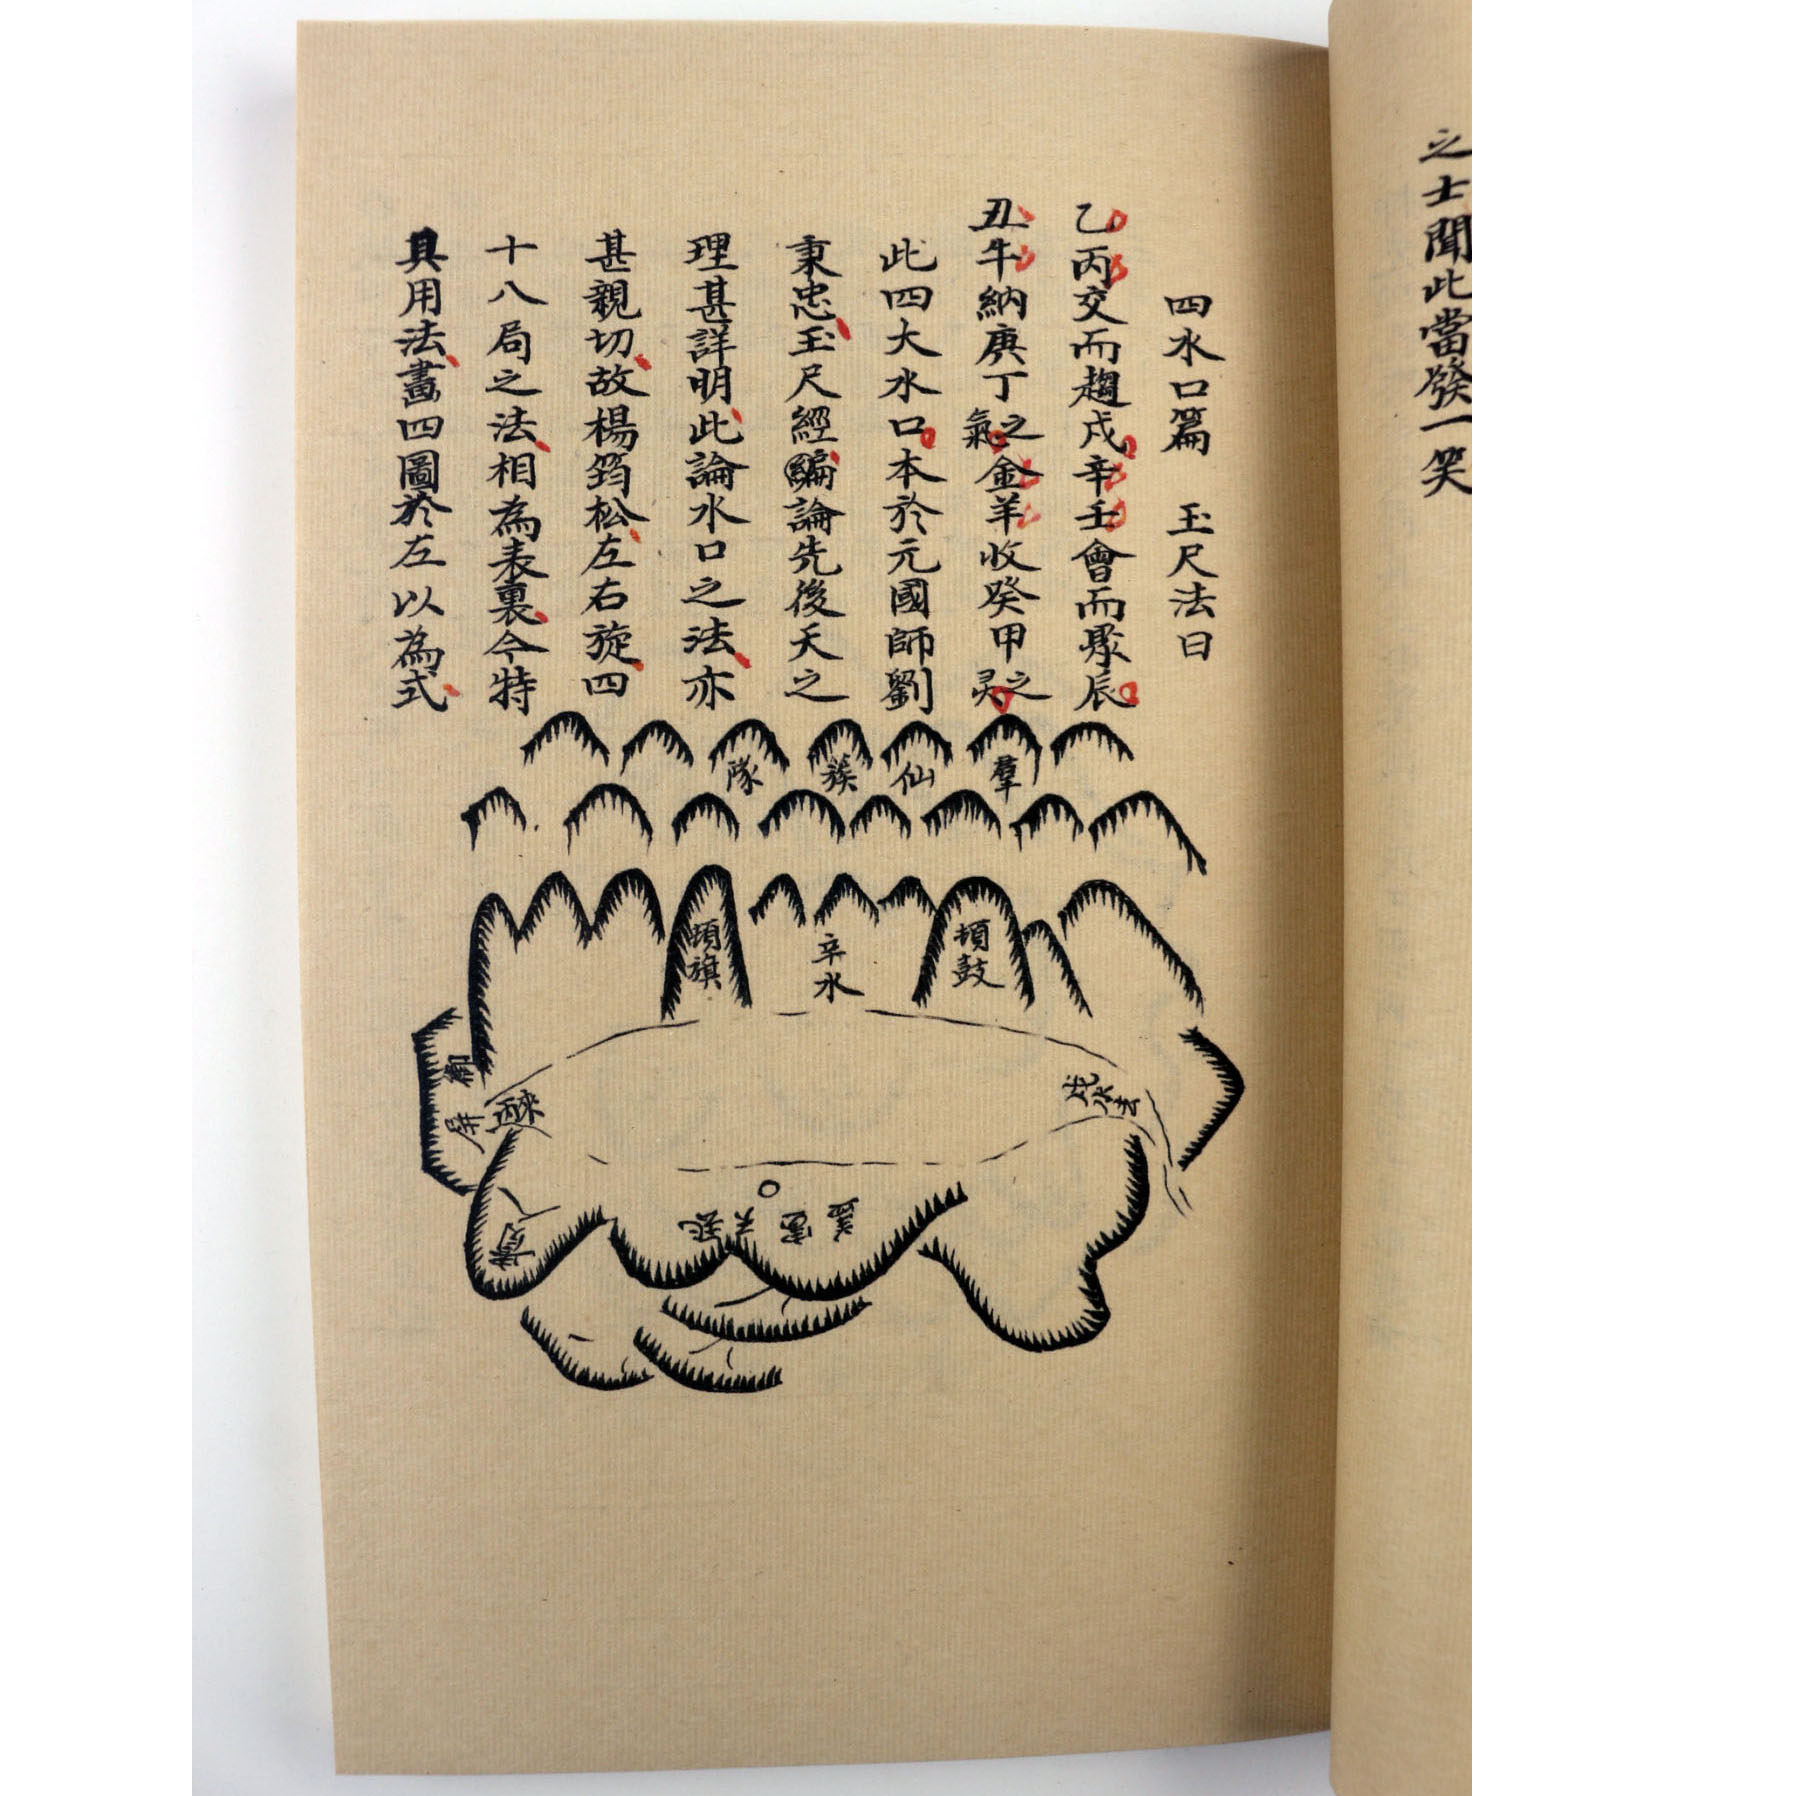 之士聞此當發一笑
四水口篇　玉尺法曰
乙丙交而趨戌辛壬會而聚辰
丑牛納庚丁之氣金羊收癸甲之灵
此四大水口本於元國師劉
秉忠玉尺經編論先後天之
理甚詳明此論水口之法亦
甚親切故楊筠松左右旋四
十八局之法相為表裏今特
具用法畫四圖於左以為式
羣仙簇隊
頓鼓
辛水
頓旗